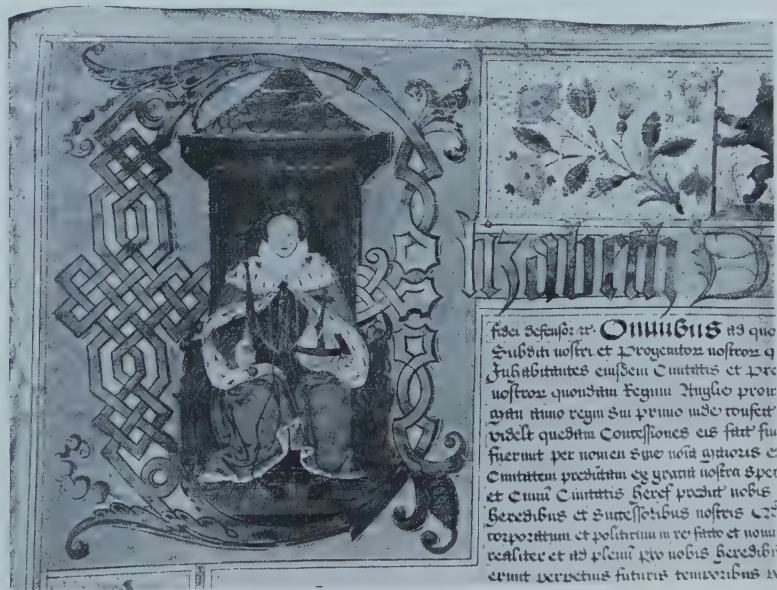 lizabeth D
fidei defensor ꝛc. Omnibus ad quo
Subditi nostri et Progenitor nostror q
Inhabitantes eiusdem Ciuitatis et pre
nostror quondam Regum Anglie prou
anno regni sui primo inde confect
videlt quedam Concessiones eis fact fu
fuerunt per nomen siue noia maioris e
Ciuitatem predictam ex gratia nostra spe
et Ciuiu Ciuitatis Heref predict nobis
heredibus et Successoribus nostris
corporatum et politicum in re facto et nomi
realiter et ad plenu pro nobis heredibus
erunt perpetuis futuris temporibus